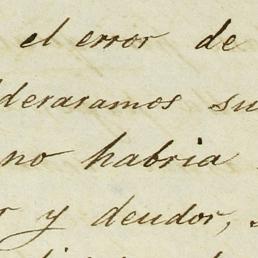 el error de
deraramos su
no habria
r y deudor,